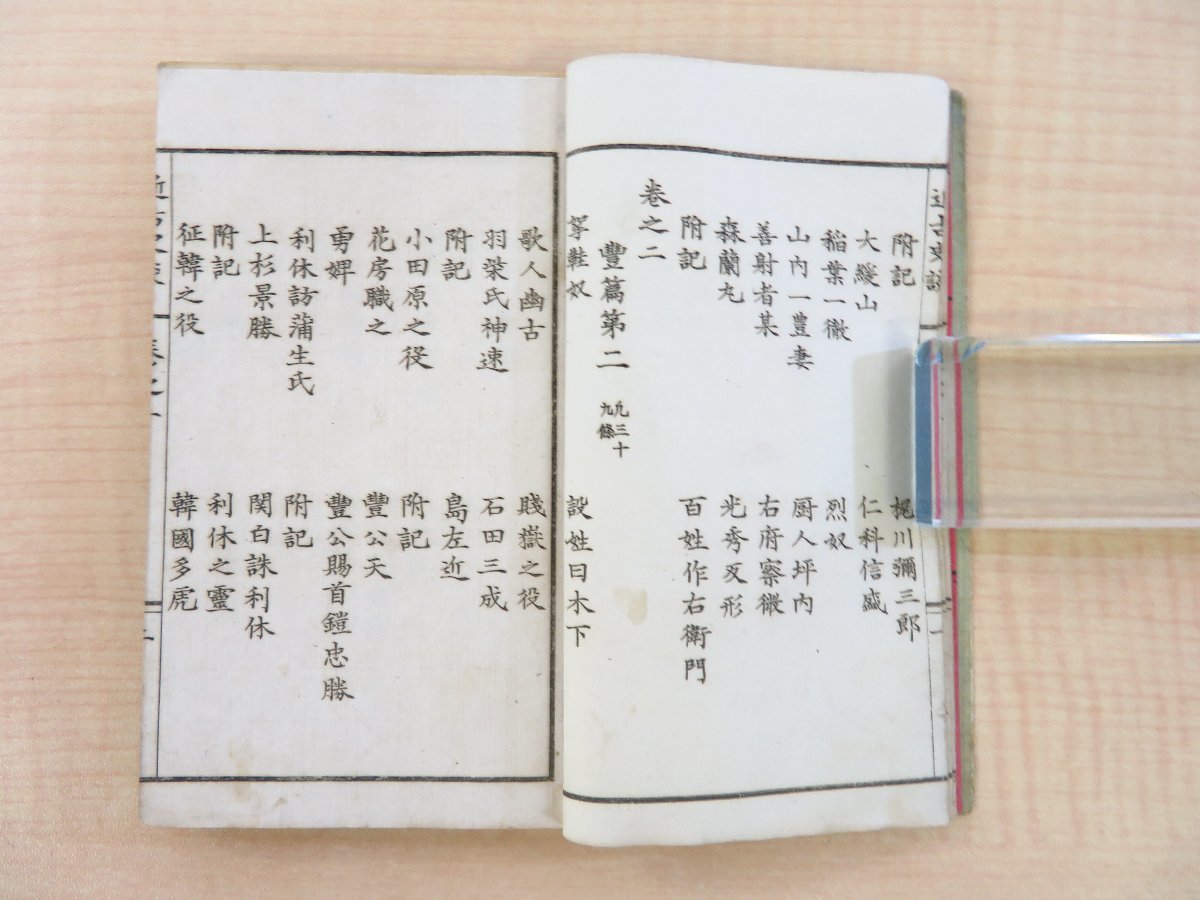 近古史談
附記
梶川彌三郎
大縱山
仁科信盛
稲葉一徹
烈奴
山内一豊妻
厨人坪内
善射者某
右府察微
森蘭丸
光秀反形
附記
百姓作右衛門
卷之二
豐篇第二 凡三十九條
挐鞋奴
設姓曰木下
歌人幽古
賤嶽之役
羽柴氏神速
石田三成
附記
島左近
小田原之役
附記
花房職之
豐公天
勇婢
豐公賜首鎧忠勝
利休訪蒲生氏
附記
上杉景勝
関白誅利休
附記
利休之靈
征韓之役
韓國多虎